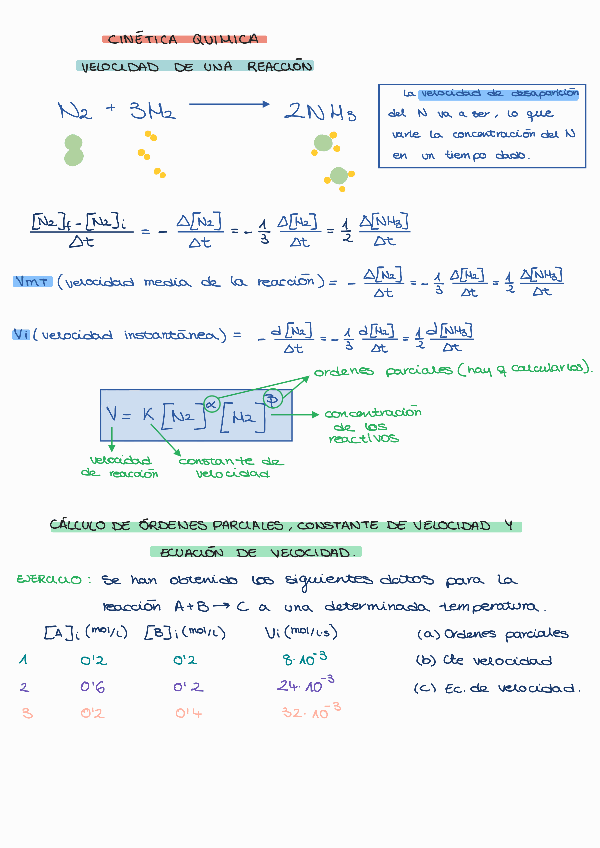 CINÉTICA QUIMICA
VELOCIDAD DE UNA REACCIÓN
N2 + 3H2 → 2NH3
La velocidad de desaparición
del N va a ser, lo que
varíe la concentración del N
en un tiempo dado.
[N2]f - [N2]i / Δt = - Δ[N2] / Δt = - 1/3 Δ[H2] / Δt = 1/2 Δ[NH3] / Δt
VmT (velocidad media de la reacción) = - Δ[N2] / Δt = - 1/3 Δ[H2] / Δt = 1/2 Δ[NH3] / Δt
Vi (velocidad instantánea) = - d[N2] / Δt = - 1/3 d[H2] / Δt = 1/2 d[NH3] / Δt
ordenes parciales (hay q calcularlos).
V = K [N2]^α [H2]^β
concentración
de los
reactivos
velocidad
de reacción
constante de
velocidad
CÁLCULO DE ÓRDENES PARCIALES, CONSTANTE DE VELOCIDAD Y
ECUACIÓN DE VELOCIDAD.
EJERCICIO: Se han obtenido los siguientes datos para la
reacción A+B → C a una determinada temperatura.
[A]i (mol/L) [B]i (mol/L) Vi (mol/L·s) (a) Ordenes parciales
1 0'2 0'2 8·10^-3 (b) Cte velocidad
2 0'6 0'2 24·10^-3 (c) Ec. de velocidad.
3 0'2 0'4 32·10^-3